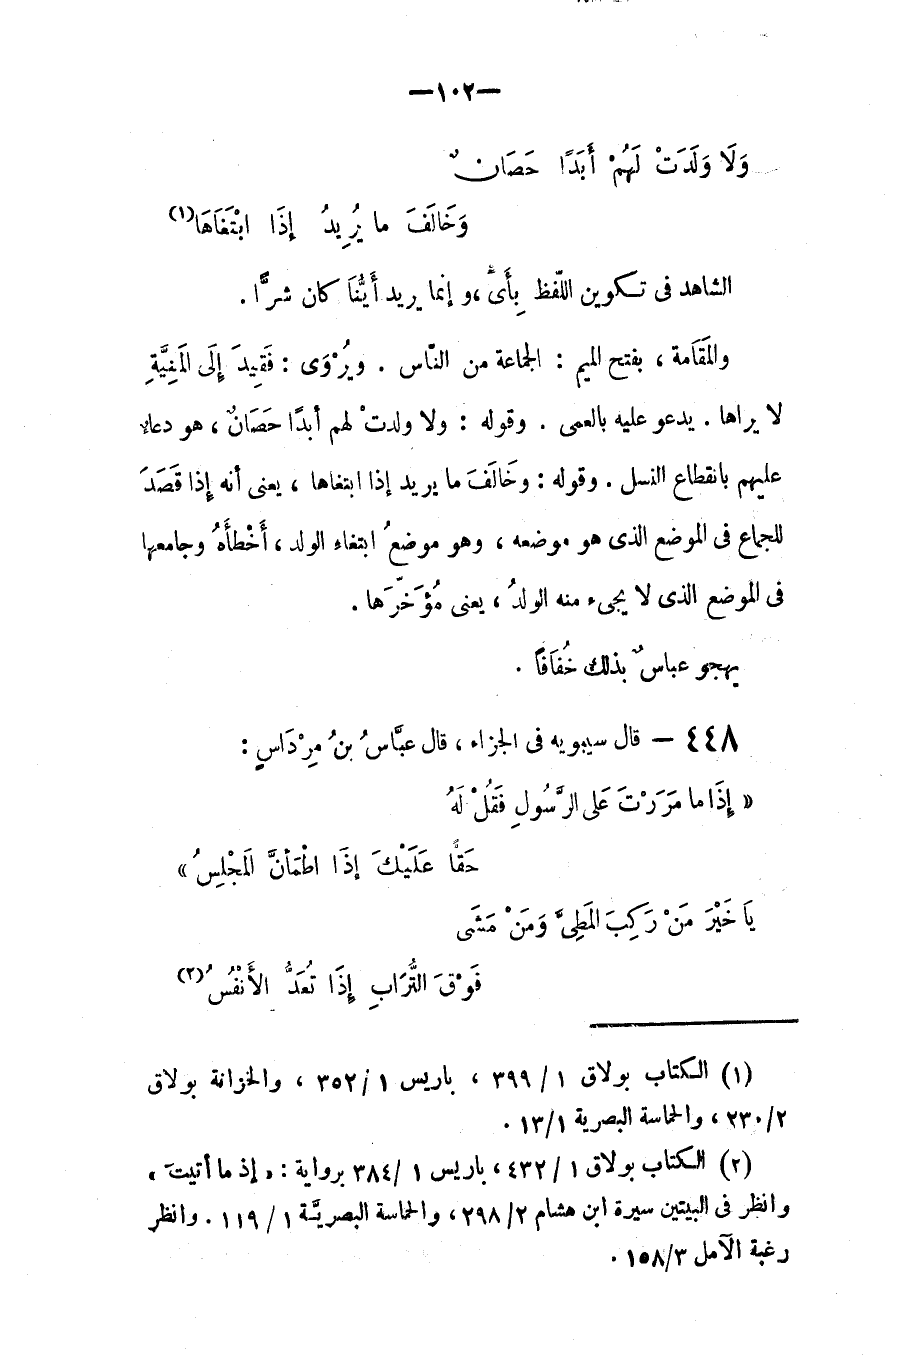 —١٠٢—
وَلَا وَلَدَتْ لَهُمْ أَبَدًا حَصَانٌ
وَخَالَفَ ما يُرِيدُ إِذَا ابْتَغَاهَا(١)
الشاهد فى تكوين اللّفظ بِأَىّ ، و إنما يريد أَيُّنَا كان شرًّا .
والمَقَامة ، بفتح الميم : الجماعة من النّاس . ويُرْوَى : فَقِيدَ إِلَى المَنِيَّةِ
لا يراها . يدعو عليه بالعمى . وقوله : ولا ولدتْ لهم أبدًا حَصَانٌ ، هو دعاء
عليهم بانقطاع النسل . وقوله : وخَالَفَ ما يريد إذا ابتغاها ، يعنى أنه إذا قَصَدَ
للجماع فى الموضع الذى هو موضعه ، وهو موضعُ ابتغاء الولد ، أَخْطأَهُ وجامعها
فى الموضع الذى لا يجىء منه الولدُ ، يعنى مُؤَخَّرَها .
يهجو عباسٌ بذلك خُفَافًا .
٤٤٨ — قال سيبويه فى الجزاء ، قال عبَّاسُ بنُ مِرْدَاسٍ :
« إِذَا ما مَرَرْتَ عَلى الرَّسُولِ فَقُلْ لَهُ
حَقًّا عَلَيْكَ إِذَا اطْمَأنَّ المَجْلِسُ »
يَا خَيْرَ مَنْ رَكِبَ المَطِىَّ وَمَنْ مَشَى
فَوْقَ التُّرَابِ إِذَا تُعَدُّ الأَنْفُسُ(٢)
(١) الكتاب بولاق ١ / ٣٩٩ ، باريس ١ / ٣٥٢ ، والخزانة بولاق
٢ / ٢٣٠ ، والحماسة البصرية ١ / ١٣ .
(٢) الكتاب بولاق ١ / ٤٣٢ ، باريس ١ / ٣٨٤ برواية : « إذ ما أتيت » ،
وانظر فى البيتين سيرة ابن هشام ٢ / ٢٩٨ ، والحماسة البصريّة ١ / ١١٩ . وانظر
رغبة الآمل ٣ / ١٥٨ .